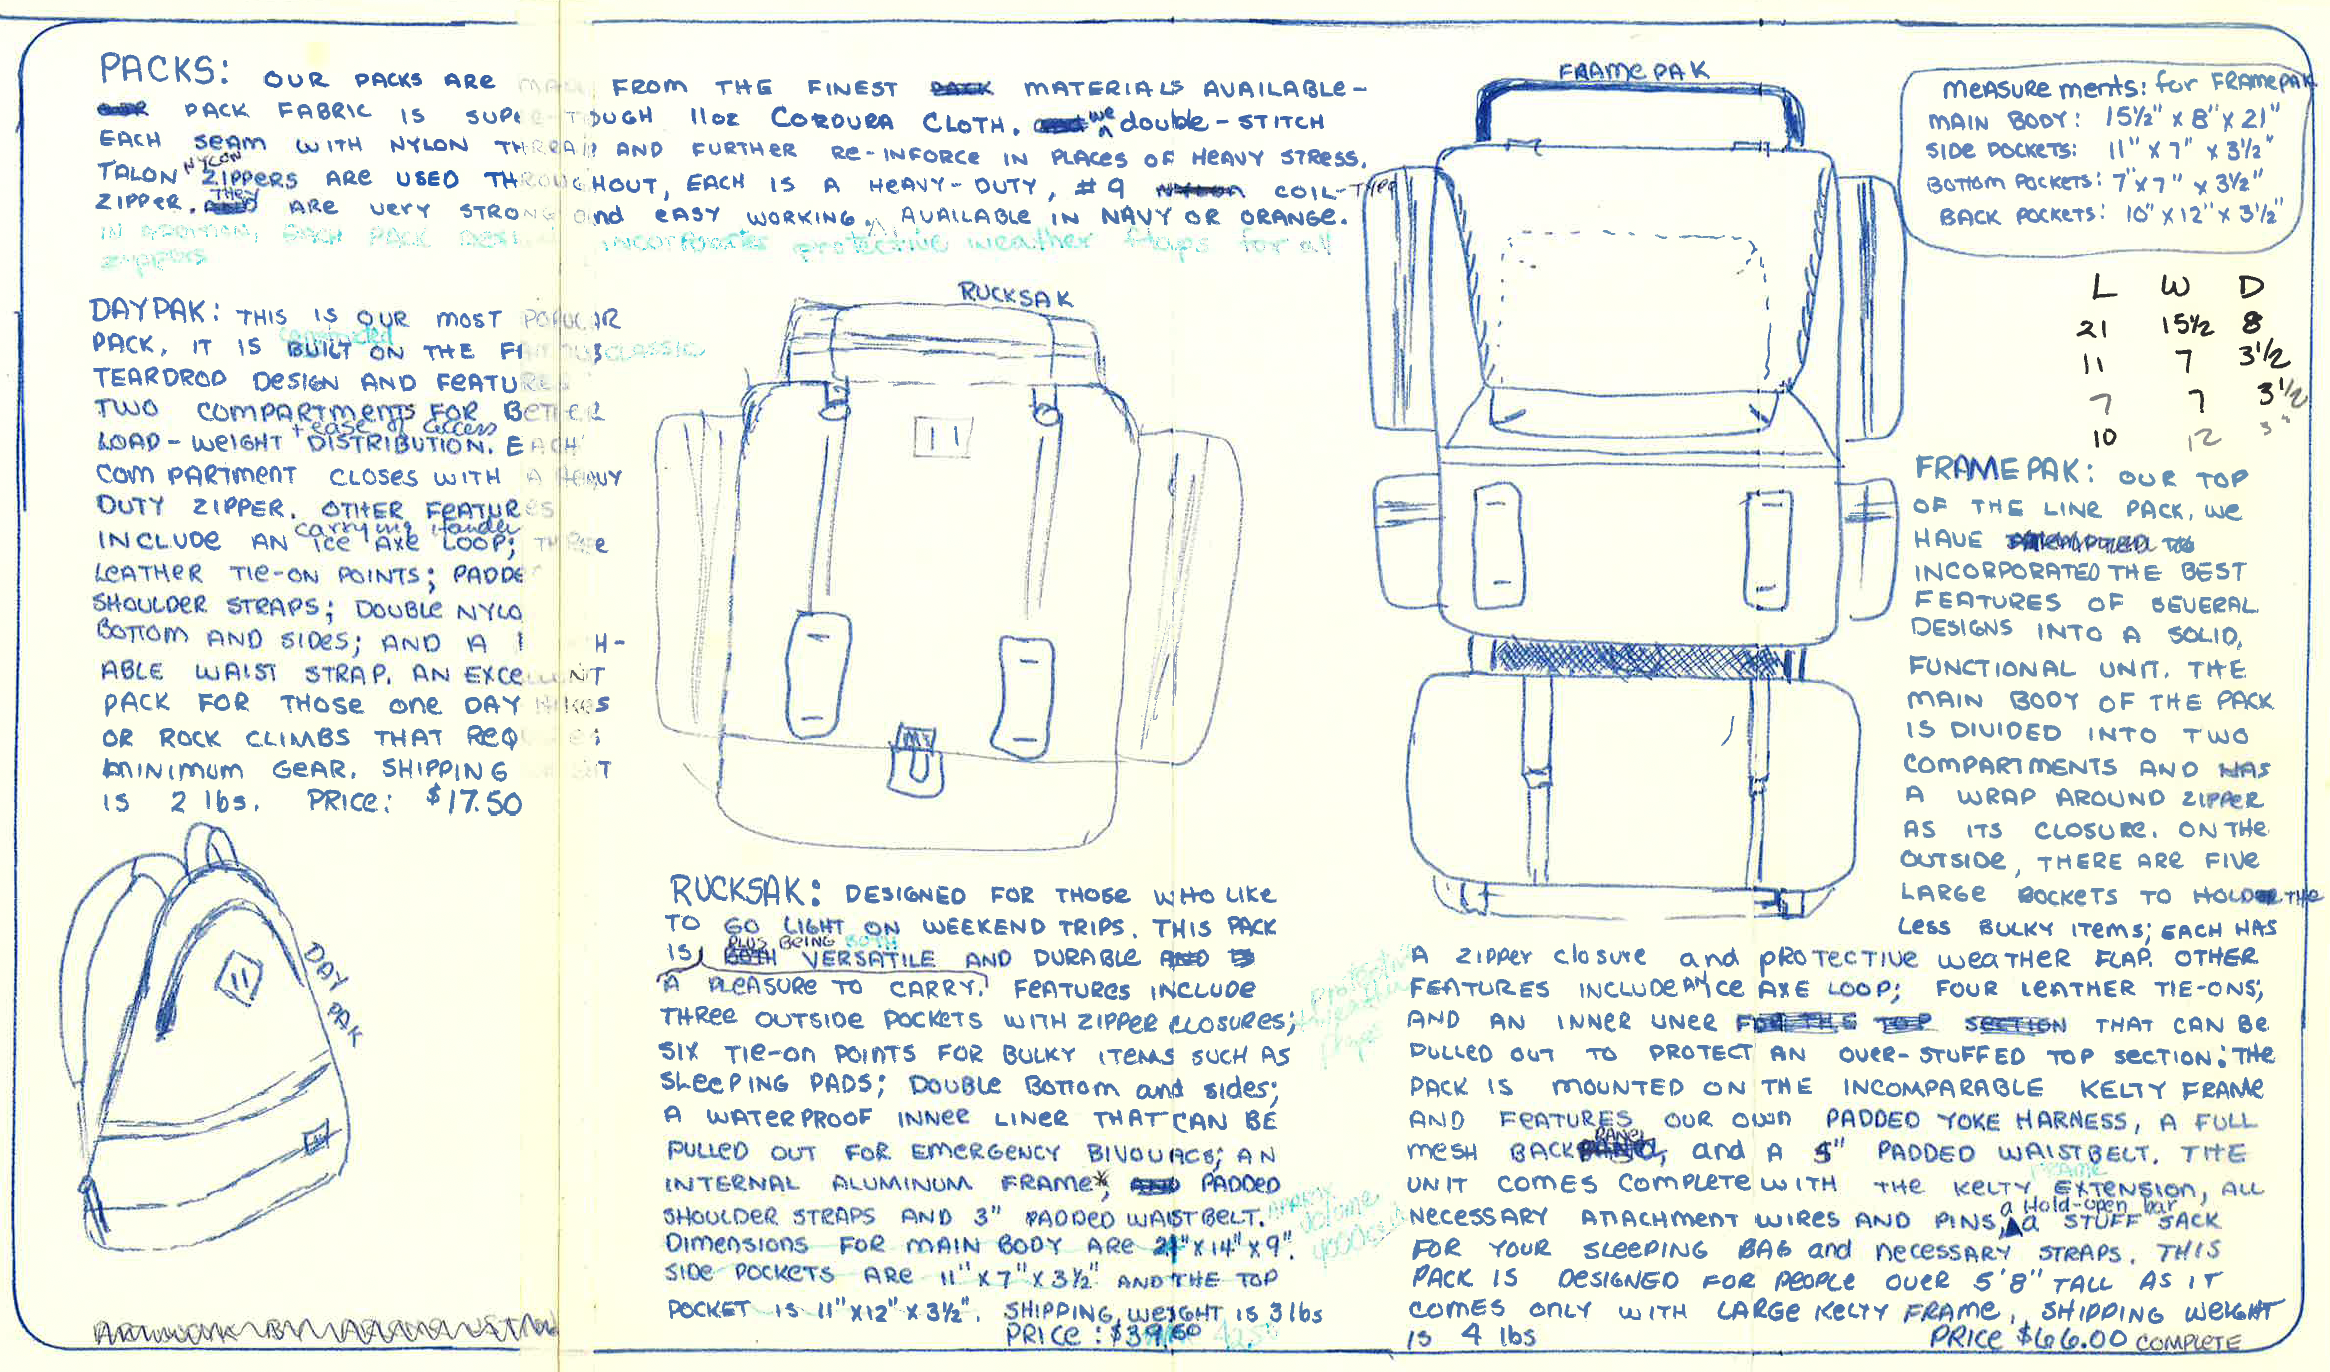 PACKS: OUR PACKS ARE MADE FROM THE FINEST MATERIALS AVAILABLE-
PACK FABRIC IS SUPER-TOUGH 11oz CORDURA CLOTH. we double-STITCH
EACH SEAM WITH NYLON THREAD AND FURTHER RE-INFORCE IN PLACES OF HEAVY STRESS.
TALON NYLON ZIPPERS ARE USED THROUGHOUT, EACH IS A HEAVY-DUTY, #9 COIL-TYPE
ZIPPER. THEY ARE VERY STRONG and EASY WORKING. AVAILABLE IN NAVY OR ORANGE.
IN ADDITION, EACH PACK DESIGN INCORPORATES protective weather flaps for all
zippers
DAYPAK: THIS IS OUR MOST POPULAR
PACK. IT IS BUILT constructed ON THE FAMOUS CLASSIC
TEARDROD DESIGN AND FEATURES
TWO COMPARTMENTS FOR BETTER
LOAD-WEIGHT + ease of access DISTRIBUTION. EACH
COMPARTMENT CLOSES WITH A HEAVY
DUTY ZIPPER. OTHER FEATURES
INCLUDE AN carrying Handle ICE AXE LOOP; THREE
LEATHER TIE-ON POINTS; PADDE
SHOULDER STRAPS; DOUBLE NYLO
BOTTOM AND SIDES; AND A H-
ABLE WAIST STRAP. AN EXCELLENT
PACK FOR THOSE ONE DAY HIKES
OR ROCK CLIMBS THAT REQUIRES
MINIMUM GEAR. SHIPPING WEIGHT
IS 2 lbs. PRICE: $17.50
DAY PAK
RUCKSAK
RUCKSAK: DESIGNED FOR THOSE WHO LIKE
TO GO LIGHT ON WEEKEND TRIPS. THIS PACK
IS PLUS BEING BOTH VERSATILE AND DURABLE
A PLEASURE TO CARRY. FEATURES INCLUDE
THREE OUTSIDE POCKETS WITH ZIPPER CLOSURES;
protective weather flaps
SIX TIE-ON POINTS FOR BULKY ITEMS SUCH AS
SLEEPING PADS; DOUBLE BOTTOM and sides;
A WATERPROOF INNER LINER THAT CAN BE
PULLED OUT FOR EMERGENCY BIVOUACS; AN
INTERNAL ALUMINUM FRAME*, PADDED
SHOULDER STRAPS AND 3" PADDED WAISTBELT.
DIMENSIONS FOR MAIN BODY ARE 21"X14"X9".
SIDE POCKETS ARE 11"X7"X3½" AND THE TOP
POCKET IS 11"X12"X3½". SHIPPING WEIGHT IS 3 lbs
PRICE: $39.50
FRAMEPAK
MEASUREMENTS: for FRAMEPAK
MAIN BODY: 15½" X 8" X 21"
SIDE POCKETS: 11" X 7" X 3½"
BOTTOM POCKETS: 7" X 7" X 3½"
BACK POCKETS: 10" X 12" X 3½"
L W D
21 15½ 8
11 7 3½
7 7 3½
10 12 3"
FRAMEPAK: OUR TOP
OF THE LINE PACK. WE
HAVE
INCORPORATED THE BEST
FEATURES OF SEVERAL
DESIGNS INTO A SOLID,
FUNCTIONAL UNIT. THE
MAIN BODY OF THE PACK
IS DIVIDED INTO TWO
COMPARTMENTS AND HAS
A WRAP AROUND ZIPPER
AS ITS CLOSURE. ON THE
OUTSIDE, THERE ARE FIVE
LARGE POCKETS TO HOLD THE
LESS BULKY ITEMS; EACH HAS
A ZIPPER closure and PROTECTIVE WEATHER FLAP. OTHER
FEATURES INCLUDE AN ICE AXE LOOP; FOUR LEATHER TIE-ONS;
AND AN INNER LINER THAT CAN BE
PULLED OUT TO PROTECT AN OVER-STUFFED TOP SECTION. THE
PACK IS MOUNTED ON THE INCOMPARABLE KELTY FRAME
AND FEATURES OUR OWN PADDED YOKE HARNESS, A FULL
MESH BACK PANEL, and A 5" PADDED WAISTBELT. THE
UNIT COMES COMPLETE WITH THE KELTY FRAME EXTENSION, ALL
NECESSARY ATTACHMENT WIRES AND PINS, a Hold-open bar, a STUFF SACK
FOR YOUR SLEEPING BAG and NECESSARY STRAPS. THIS
PACK IS DESIGNED FOR PEOPLE OVER 5'8" TALL AS IT
COMES ONLY WITH LARGE KELTY FRAME, SHIPPING WEIGHT
IS 4 lbs PRICE $66.00 COMPLETE